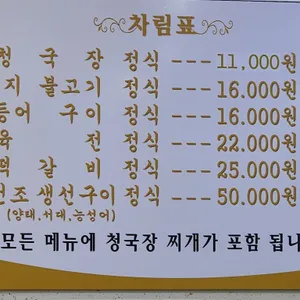 차림표
청국장 정식 --- 11,000원
지 불고기 정식 --- 16.000원
등어 구이 정식 --- 16.000원
육전 정식 --- 22.000원
떡갈비 정식 --- 25.000원
건조 생선구이 정식 --- 50.000원
(양태,서대,능성어)
모든 메뉴에 청국장 찌개가 포함 됩니